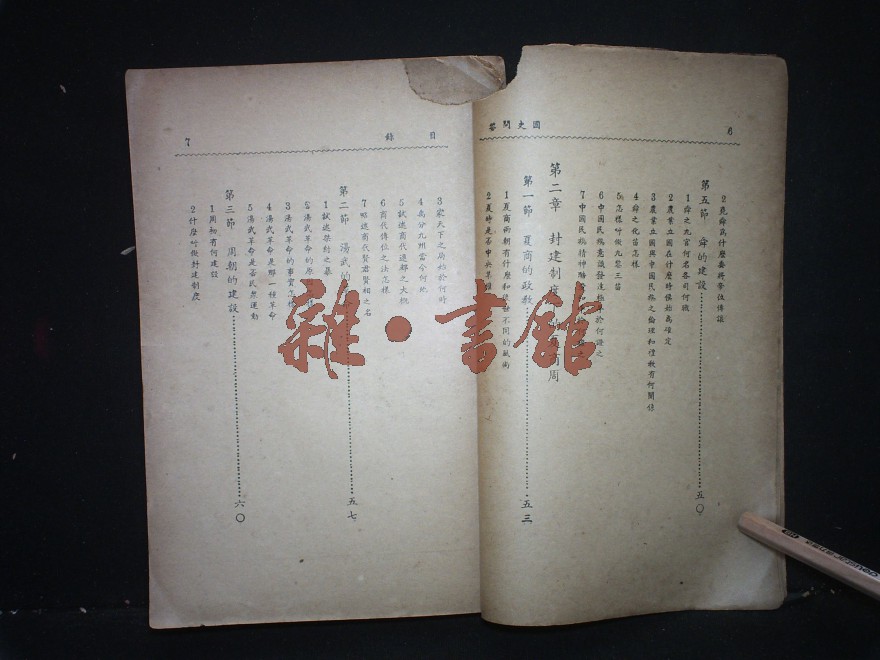 國史問答
6
2 堯舜爲什麼要將帝位傳讓
第五節 舜的建設 五〇
1 舜之九官何名各司何職
2 農業立國在什麼時候始爲確定
3 農業立國與中國民族之倫理和禮教有何關係
4 舜之化苗怎樣
5 怎樣叫做九黎三苗
6 中國民族意識發達 於何證之
7 中國民族精神
第二章 封建制度 周
第一節 夏商的政教 五三
1 夏商兩朝有什麼和 不同的政術
2 夏時是否中央
目錄
7
3 家天下之局始於何時
4 禹分九州當今何地
5 試述商代遷都之大概
6 商代傳位之法怎樣
7 略述商代賢君賢相之名
第二節 湯武的 五七
1 試述桀紂之暴
2 湯武革命的原
3 湯武革命的事實怎樣
4 湯武革命是那一種革命
5 湯武革命是否民衆運動
第三節 周朝的建設 六〇
1 周初有何建設
2 什麼叫做封建制度
雜·書館